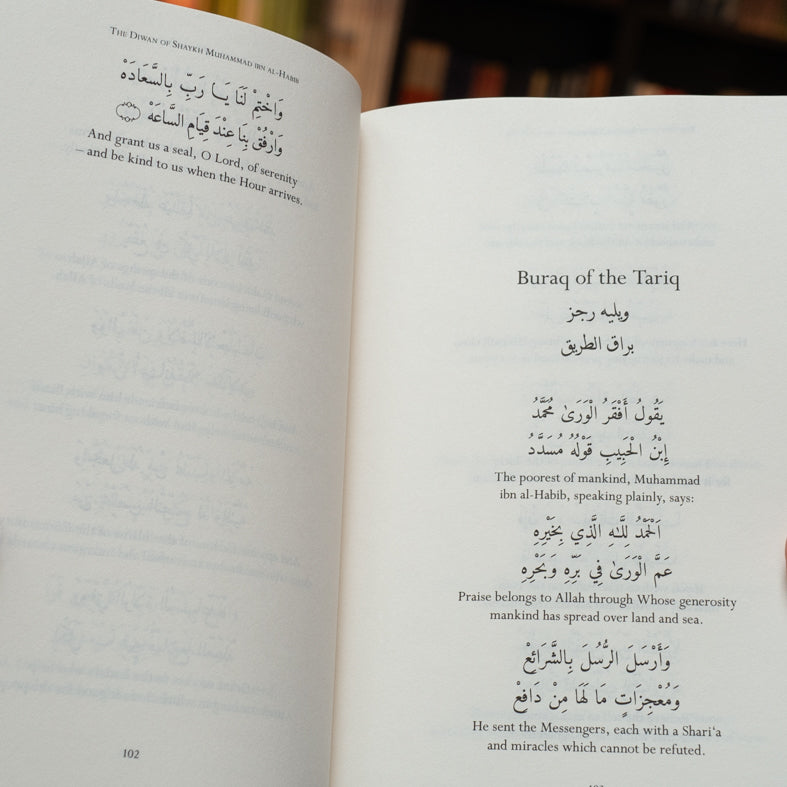 THE DIWAN OF SHAYKH MUHAMMAD IBN AL-HABIB
وَاخْتِمْ لَنَا يَا رَبِّ بِالسَّعَادَهْ
وَارْفُقْ بِنَا عِنْدَ قِيَامِ السَّاعَهْ
And grant us a seal, O Lord, of serenity
– and be kind to us when the Hour arrives.
102
Buraq of the Tariq
ويليه رجز
براق الطريق
يَقُولُ أَفْقَرُ الْوَرَىٰ مُحَمَّدُ
إِبْنُ الْحَبِيبِ قَوْلُهُ مُسَدَّدُ
The poorest of mankind, Muhammad
ibn al-Habib, speaking plainly, says:
اَلْحَمْدُ لِلَّـٰهِ الَّذِي بِخَيْرِهِ
عَمَّ الْوَرَىٰ فِي بَرِّهِ وَبَحْرِهِ
Praise belongs to Allah through Whose generosity
mankind has spread over land and sea.
وَأَرْسَلَ الرُّسُلَ بِالشَّرَائِعْ
وَمُعْجِزَاتٍ مَا لَهَا مِنْ دَافِعْ
He sent the Messengers, each with a Shari‘a
and miracles which cannot be refuted.